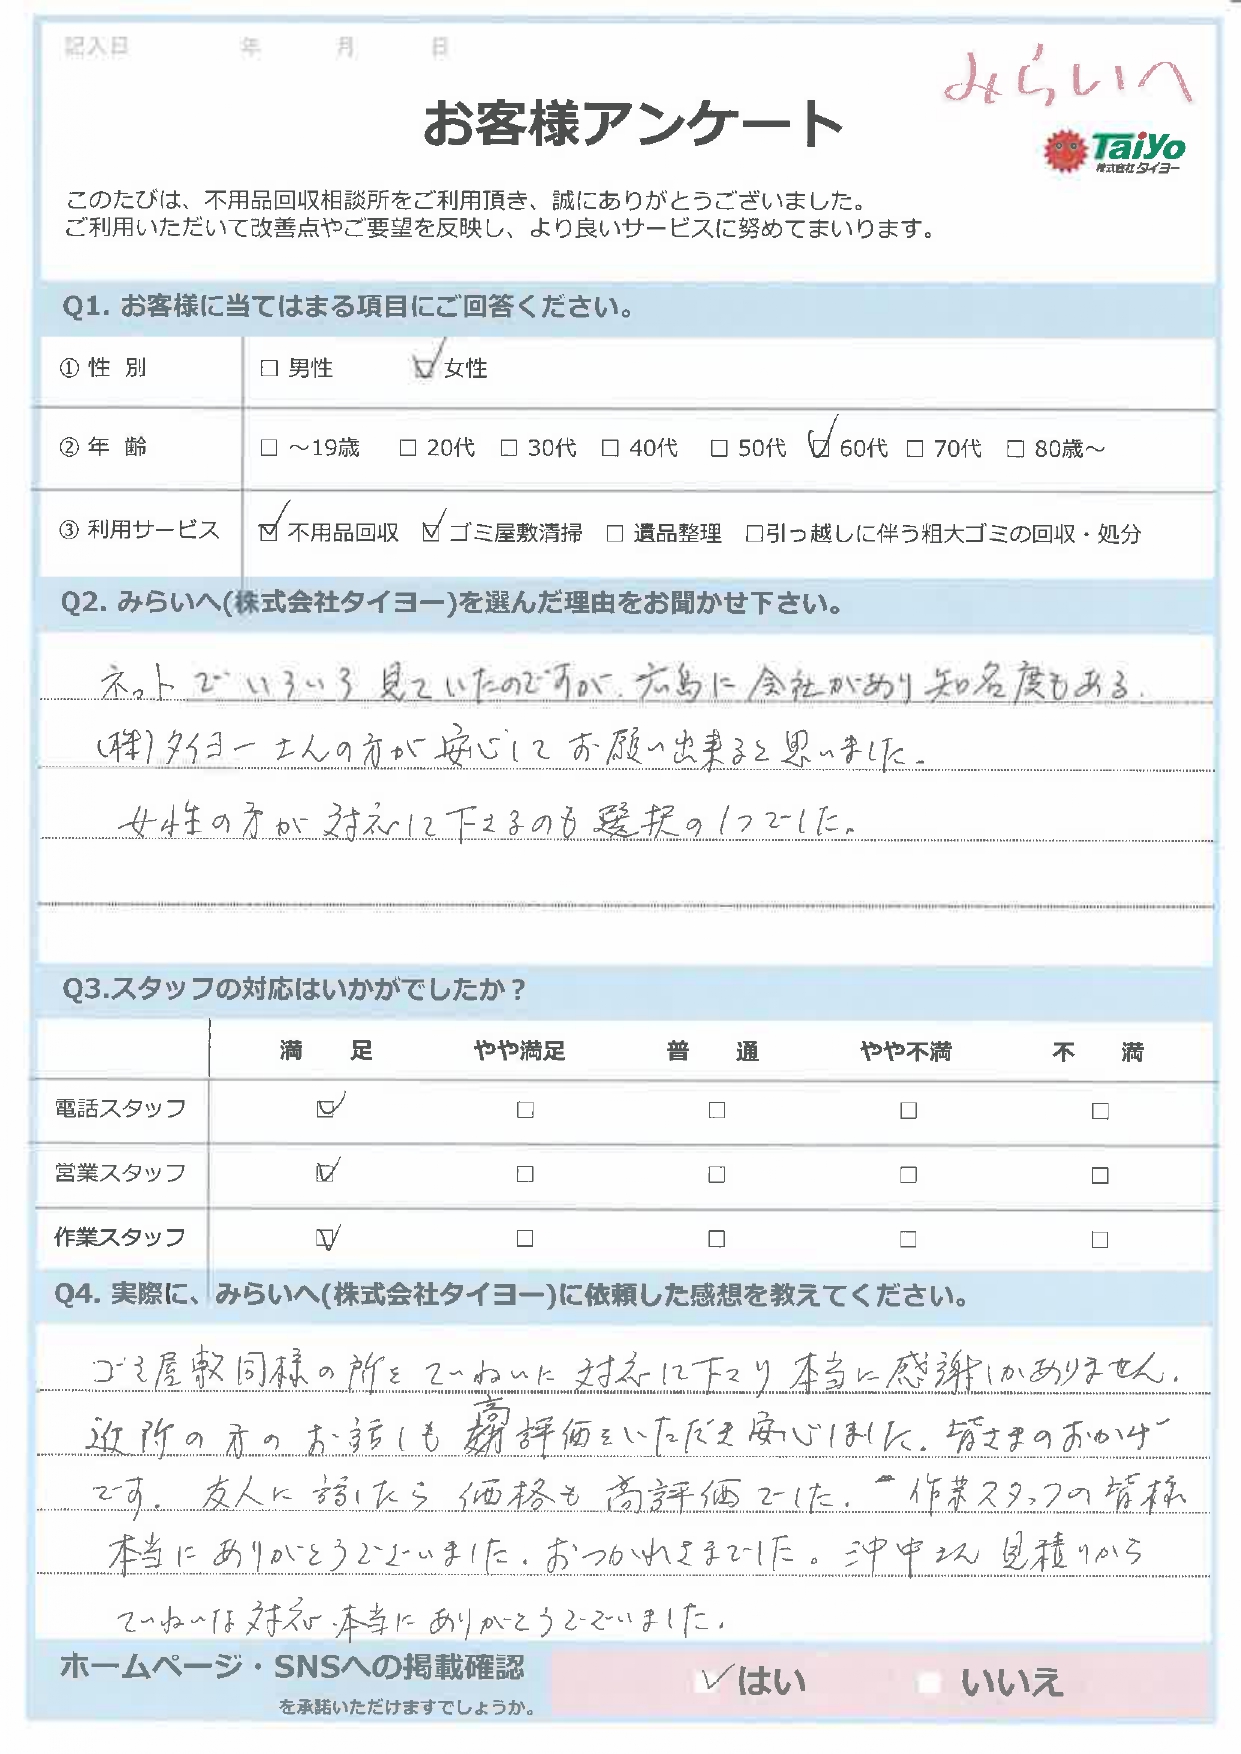 記入日 年 月 日
みらいへ
お客様アンケート
Taiyo
株式会社タイヨー
このたびは、不用品回収相談所をご利用頂き、誠にありがとうございました。
ご利用いただいて改善点やご要望を反映し、より良いサービスに努めてまいります。
Q1. お客様に当てはまる項目にご回答ください。
① 性 別 □ 男性 ☑ 女性
② 年 齢 □ ～19歳 □ 20代 □ 30代 □ 40代 □ 50代 ☑ 60代 □ 70代 □ 80歳～
③ 利用サービス ☑ 不用品回収 ☑ ゴミ屋敷清掃 □ 遺品整理 □引っ越しに伴う粗大ゴミの回収・処分
Q2. みらいへ(株式会社タイヨー)を選んだ理由をお聞かせ下さい。
ネットでいろいろ見ていたのですが、広島に会社があり知名度もある、
(株)タイヨーさんの方が安心してお願い出来ると思いました。
女性の方が対応して下さるのも選択の1つでした。
Q3.スタッフの対応はいかがでしたか？
満 足 やや満足 普 通 やや不満 不 満
電話スタッフ ☑ □ □ □ □
営業スタッフ ☑ □ □ □ □
作業スタッフ ☑ □ □ □ □
Q4. 実際に、みらいへ(株式会社タイヨー)に依頼した感想を教えてください。
ゴミ屋敷同様の所をていねいに対応して下さり本当に感謝しかありません。
近所の方のお話しも高評価をいただき安心しました。皆さまのおかげ
です。友人に話したら価格も高評価でした。作業スタッフの皆様
本当にありがとうございました。おつかれさまでした。沖中さん見積りから
ていねいな対応本当にありがとうございました。
ホームページ・SNSへの掲載確認 ☑はい □ いいえ
を承諾いただけますでしょうか。